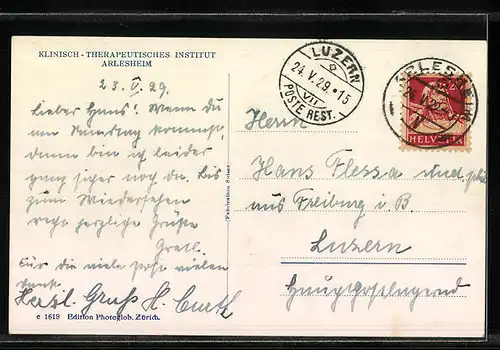 KLINISCH - THERAPEUTISCHES INSTITUT
ARLESHEIM
23. V. 29.
Lieber Hans! Wenn Du
am kommst,
dann bin ich leider
ganz sicher noch da. Bis
zum Wiedersehen
recht herzliche Grüße
Gretl.
Für die viele Post vielen
Dank.
Herzl. Gruss H. Curtz
c 1619 Edition Photoglob. Zürich.
(Fabrication Suisse)
LUZERN
24. V. 29. 15
VII
POSTE REST.
ARLESHEIM
20
HELVETIA
Herrn
Hans Flessa stud.
aus Freiburg i. B.
Luzern
Hauptpostlagernd